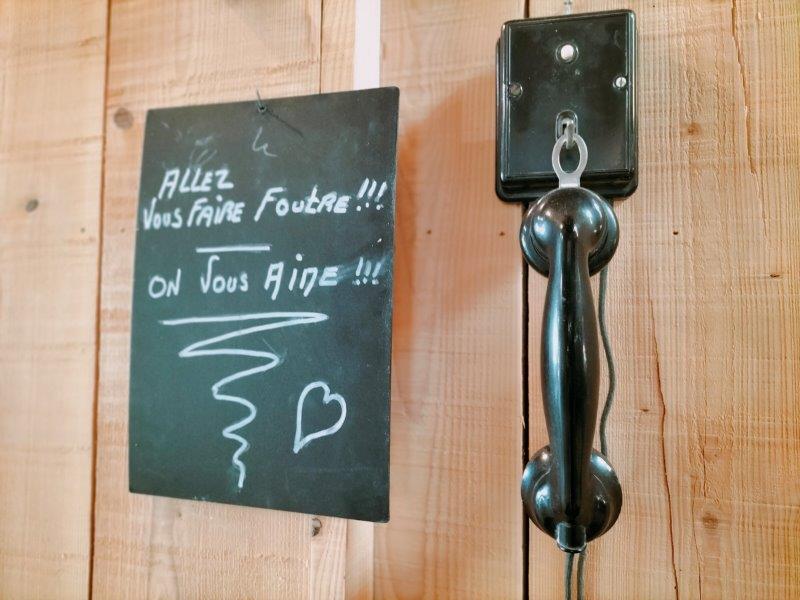 ALLEZ
VOUS FAIRE FOUTRE !!!
ON VOUS AIME !!!